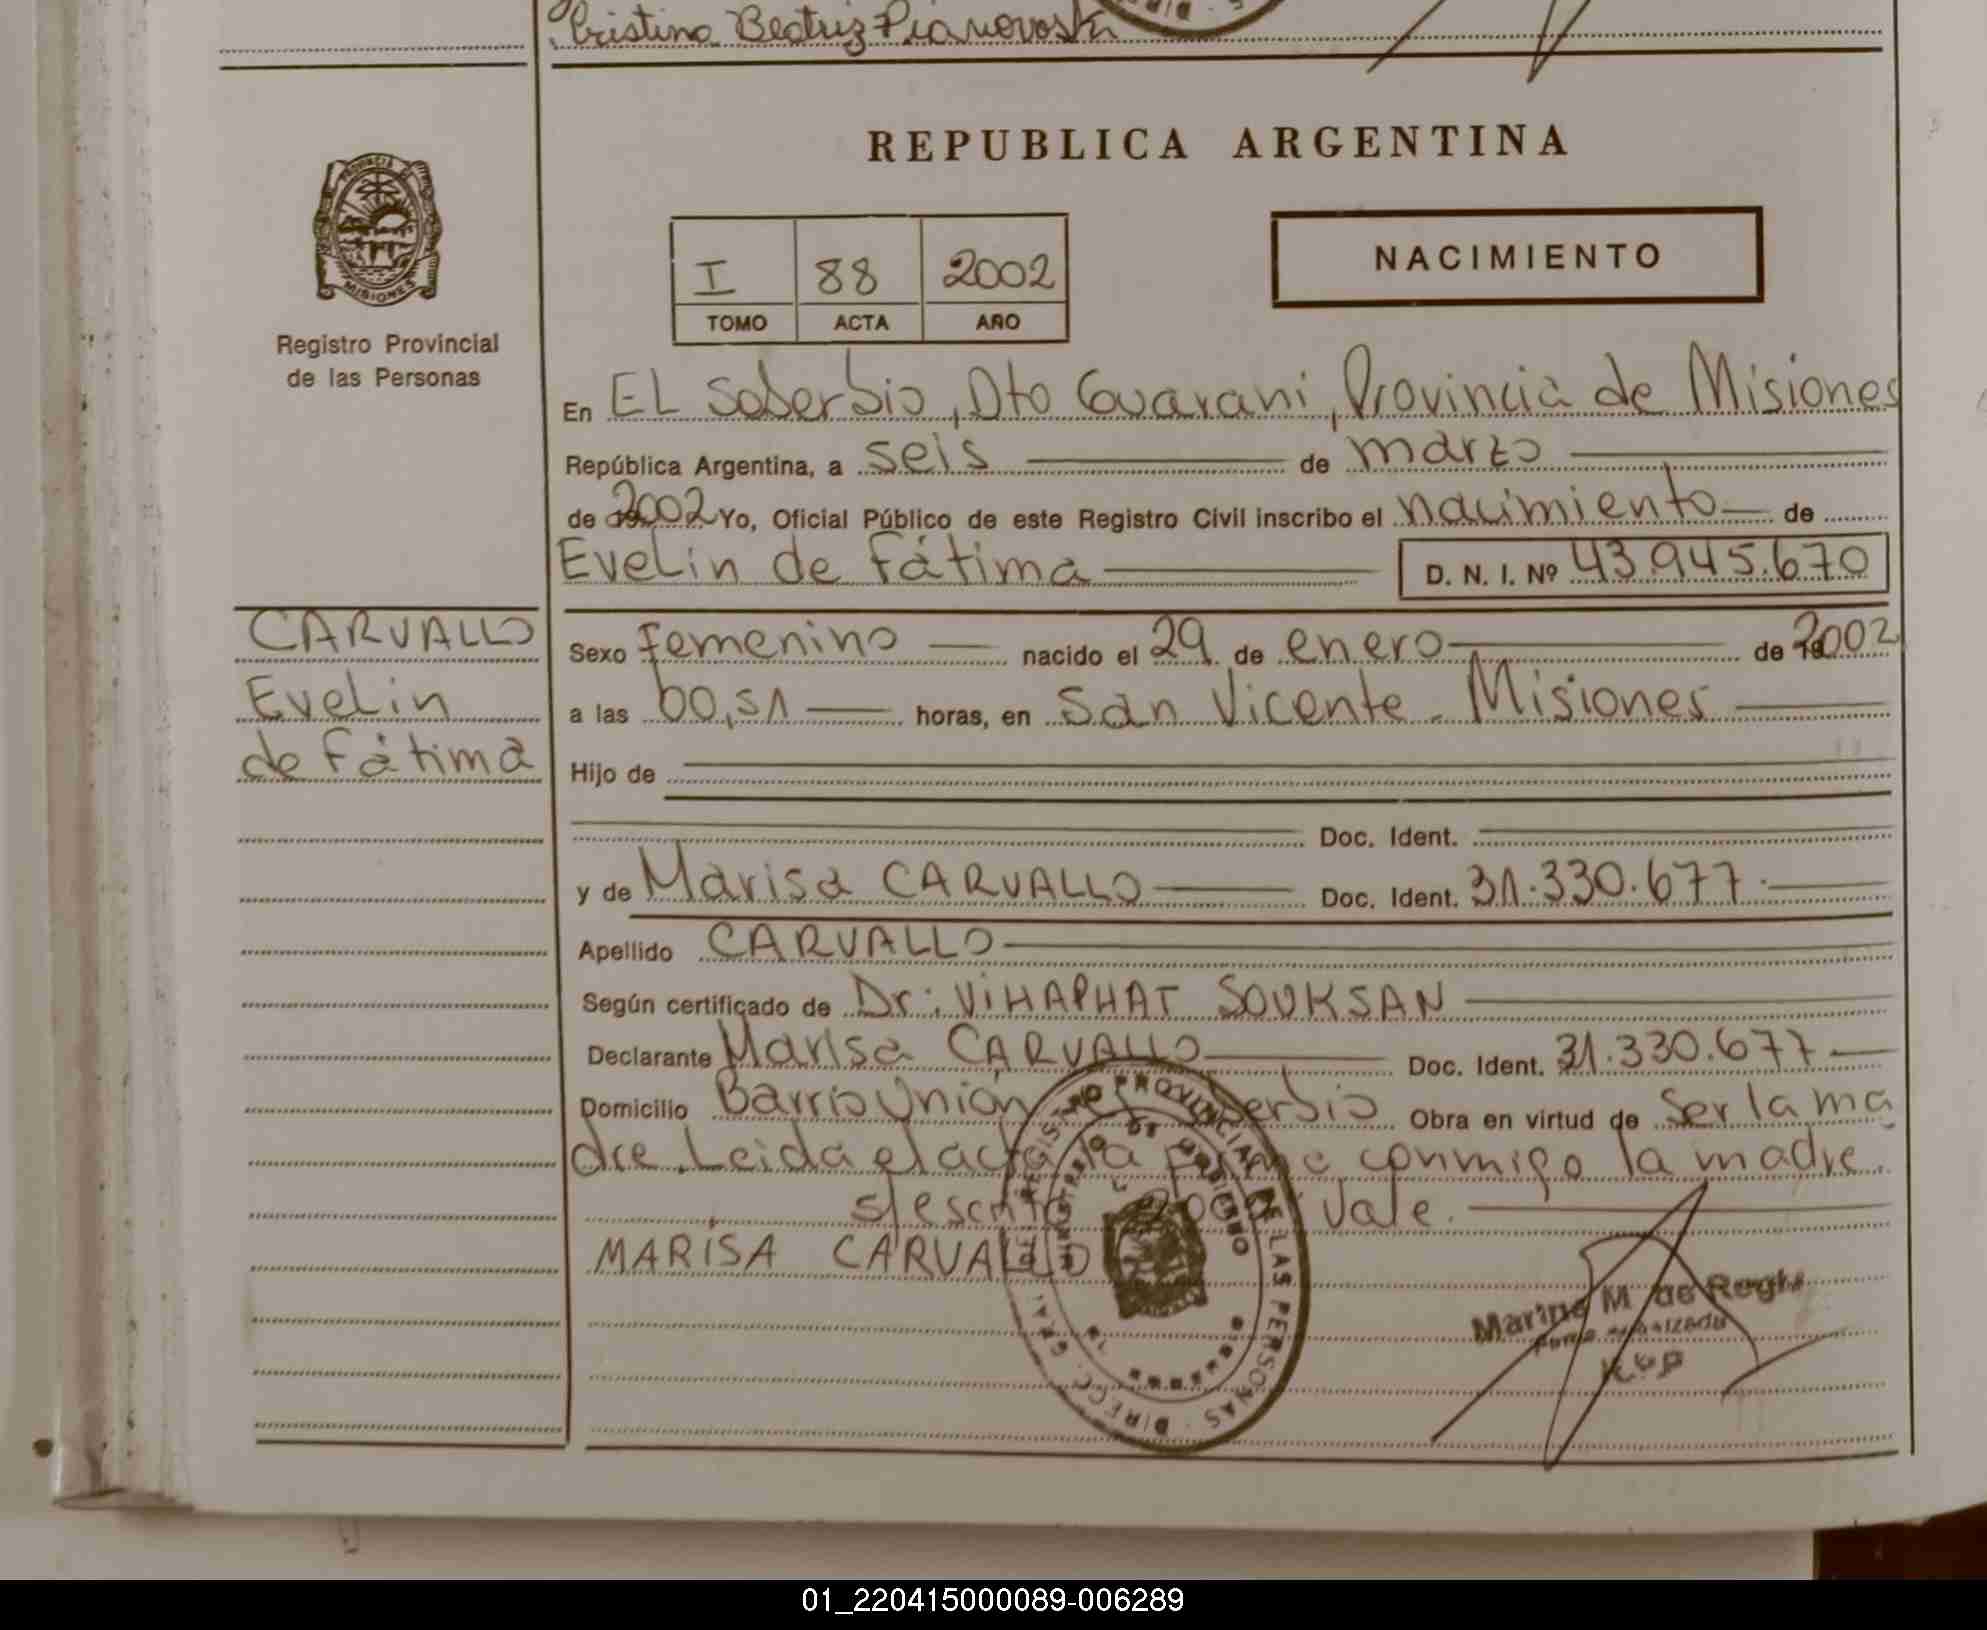 Cristina Beatriz Pianovoski
REPUBLICA ARGENTINA
PROVINCIA DE
MISIONES
Registro Provincial
de las Personas
I 88 2002
TOMO ACTA AÑO
NACIMIENTO
En EL Soberbio, Dto Guarani, Provincia de Misiones
República Argentina, a seis de marzo
de 2002 Yo, Oficial Público de este Registro Civil inscribo el nacimiento de
Evelin de Fátima D. N. I. Nº 43.945.670
CARVALLO
Evelin
de Fátima
Sexo Femenino nacido el 29 de enero de 2002
a las 00,51 horas, en San Vicente - Misiones
Hijo de
Doc. Ident.
y de Marisa CARVALLO Doc. Ident. 31.330.677.
Apellido CARVALLO
Según certificado de Dr: VIHAPHAT SOUKSAN
Declarante Marisa CARVALLO Doc. Ident. 31.330.677
Domicilio Barrio Unión El Soberbio Obra en virtud de Ser la ma
dre. Leida el acta la firma conmigo la madre.
s/escrito 2002 Vale.
MARISA CARVALLO
REGISTRO PROVINCIAL DE LAS PERSONAS - DIRECC. GRAL.
MINISTERIO DE GOBIERNO
Marina M. de Regis
R.P.P
01_220415000089-006289